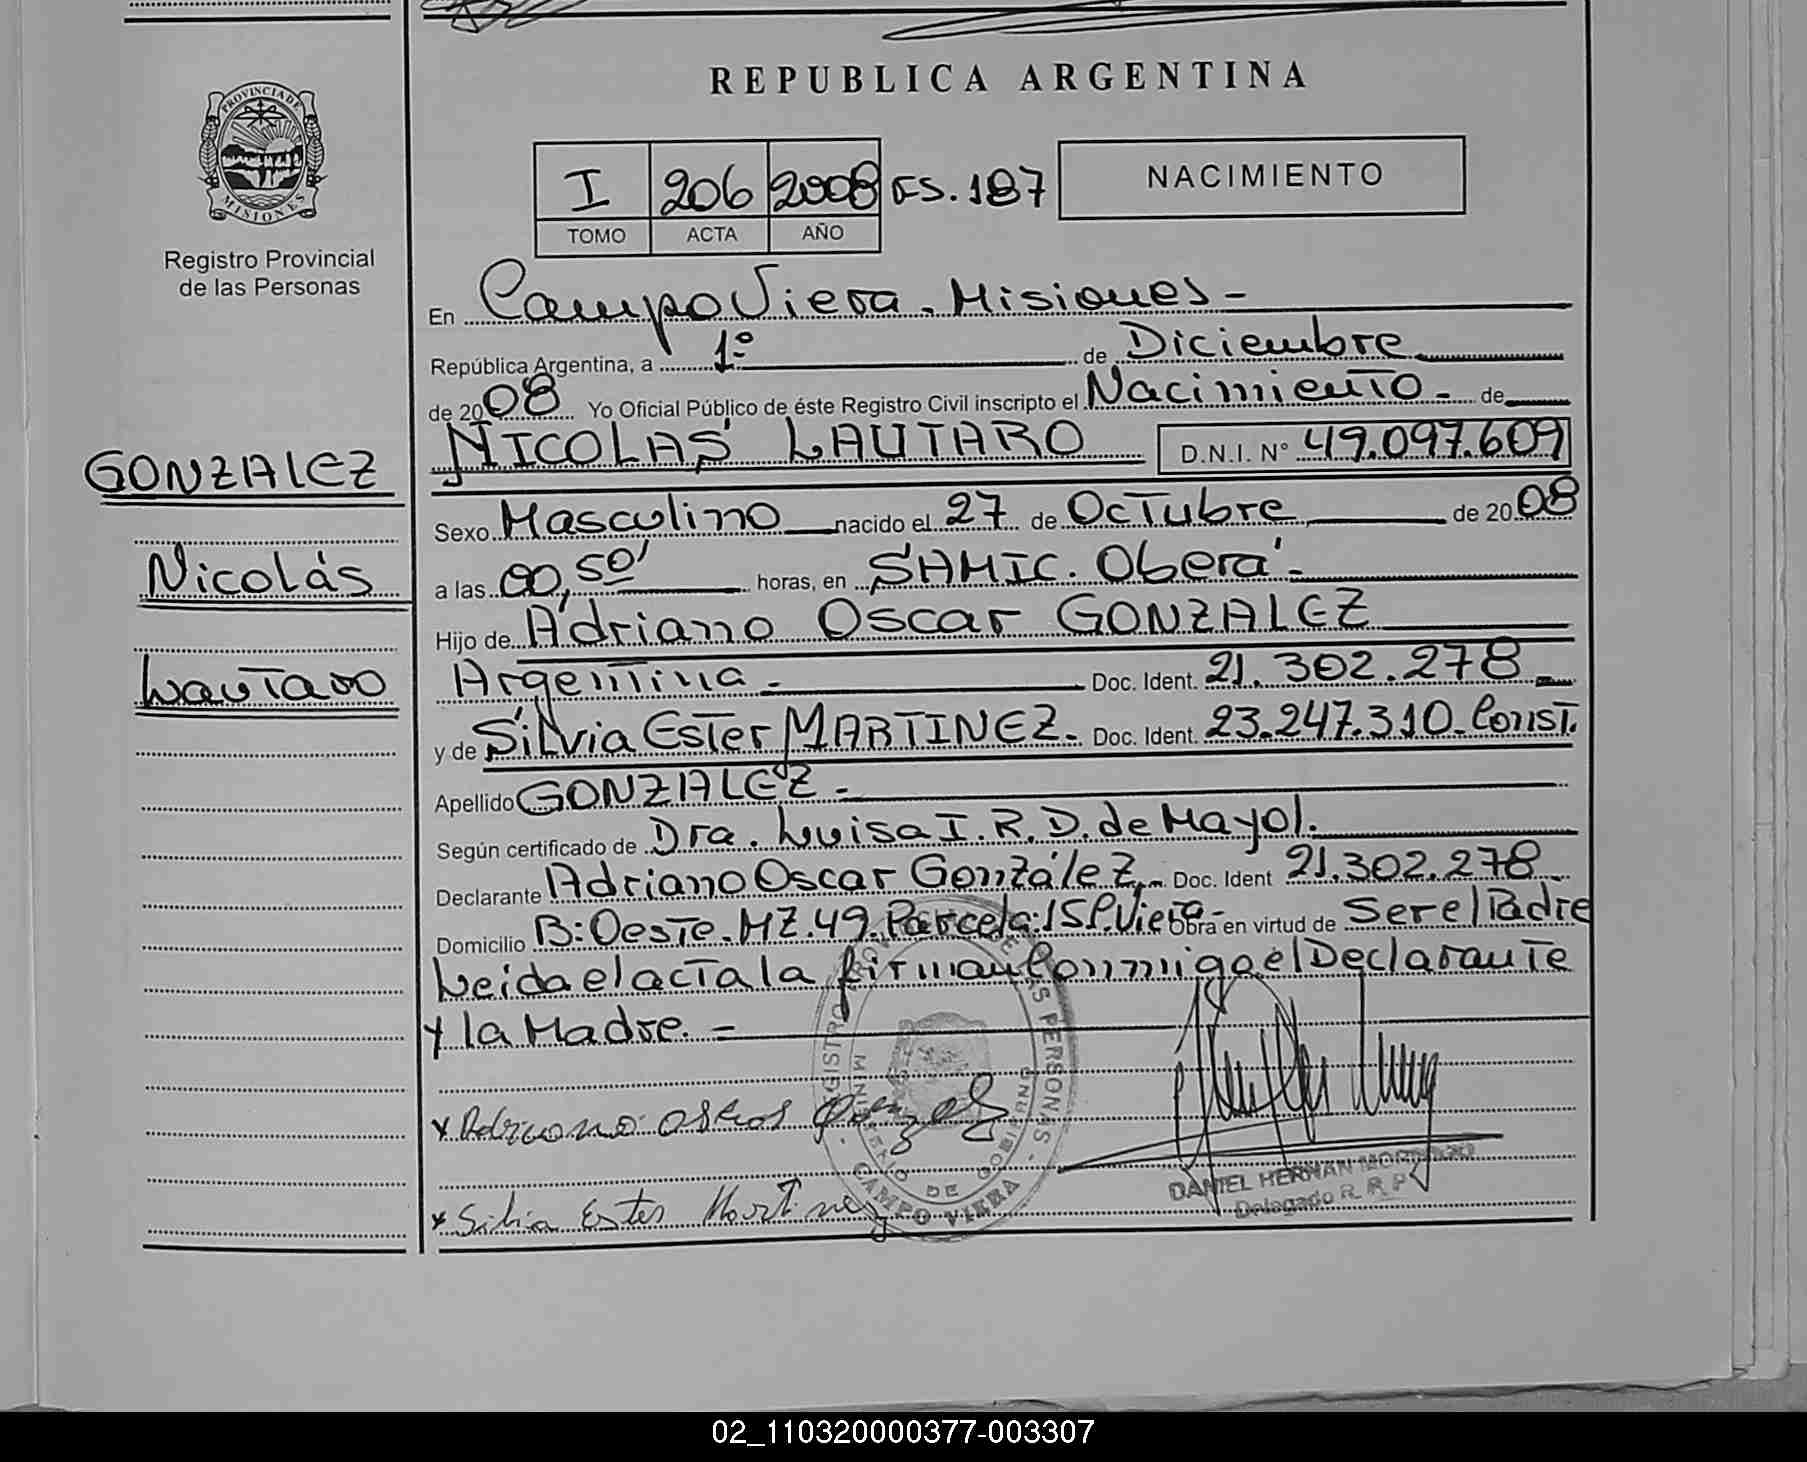 REPUBLICA ARGENTINA
PROVINCIA DE
MISIONES
Registro Provincial
de las Personas
I 206 2008 FS. 187
TOMO ACTA AÑO
NACIMIENTO
GONZALEZ
Nicolás
Lautaro
En Campo Viera. Misiones-
República Argentina, a 1º de Diciembre
de 2008 Yo Oficial Público de éste Registro Civil inscripto el Nacimiento - de
NICOLÁS LAUTARO D.N.I. Nº 49.097.609
Sexo Masculino nacido el 27 de Octubre de 2008
a las 00,50' horas, en SAMIC. Oberá-
Hijo de Adriano Oscar GONZALEZ
Argentina - Doc. Ident. 21.302.278
y de Silvia Ester MARTINEZ. Doc. Ident. 23.247.310. Const.
Apellido GONZALEZ -
Según certificado de Dra. Luisa I. R. D. de Mayol.
Declarante Adriano Oscar González Doc. Ident 21.302.278
Domicilio B: Oeste. MZ. 49. Parcela: 15 Viera- Obra en virtud de Ser el Padre
Leida el acta la firman Conmigo el Declarante
y la Madre. -
REGISTRO PROVINCIAL DE LAS PERSONAS
MINISTERIO DE GOBIERNO
CAMPO VIERA
Silvia Ester Martinez
DANIEL HERNAN
Delegado R. R. P.
02_110320000377-003307